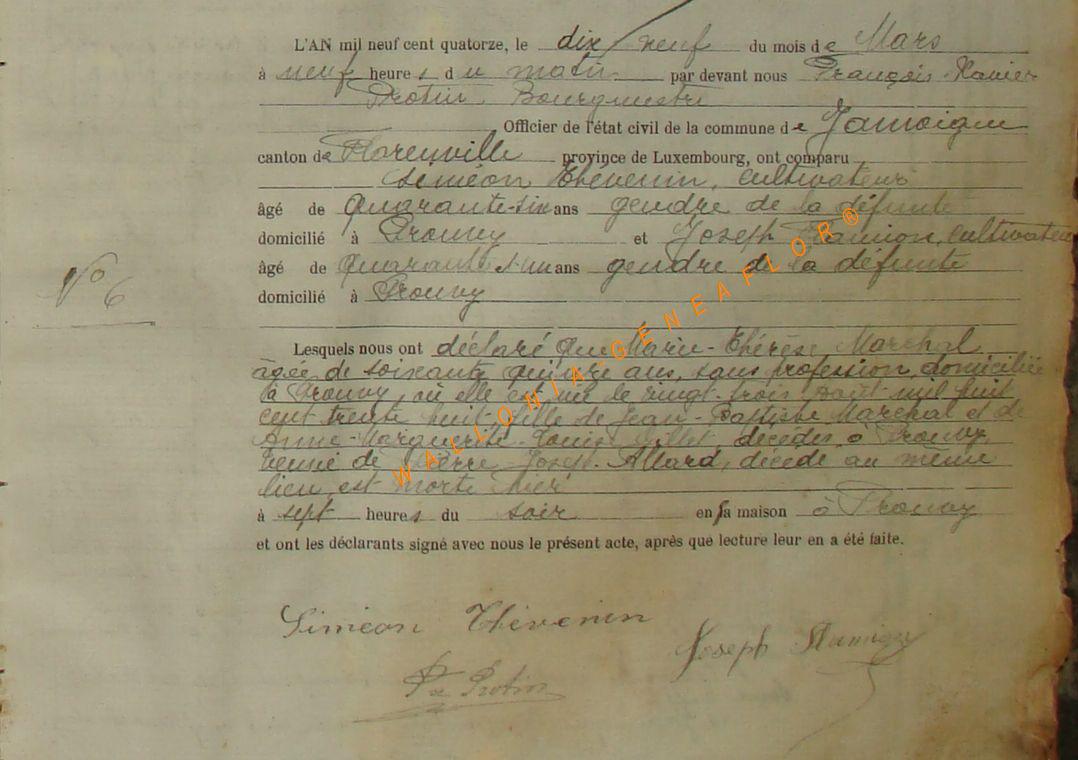 L'AN mil neuf cent quatorze, le dix neuf du mois de Mars
à neuf heures du matin par devant nous François-Xavier
Protin Bourgmestre
Officier de l'état civil de la commune de Jamoigne
canton de Florenville province de Luxembourg, ont comparu
Siméon Thévenin, cultivateur
âgé de quarante-six ans gendre de la défunte
domicilié à Prouvy et Joseph cultivateur
âgé de quarante et un ans gendre de la défunte
domicilié à Prouvy
No 6
Lesquels nous ont déclaré que Marie-Thérèse Maréchal
âgée de soixante quinze ans, sans profession, domiciliée
à Prouvy, où elle est née le vingt-trois août mil huit
cent trente huit fille de Jean-Baptiste Maréchal et de
Anne-Marguerite-Louise décédés à Prouvy
veuve de Pierre Joseph Allard, décédé au même
lieu est morte hier
à sept heures du soir en sa maison à Prouvy
et ont les déclarants signé avec nous le présent acte, après que lecture leur en a été faite.
Siméon Thévenin
Joseph
Fx Protin
WALLONIA GENEAFLOR®